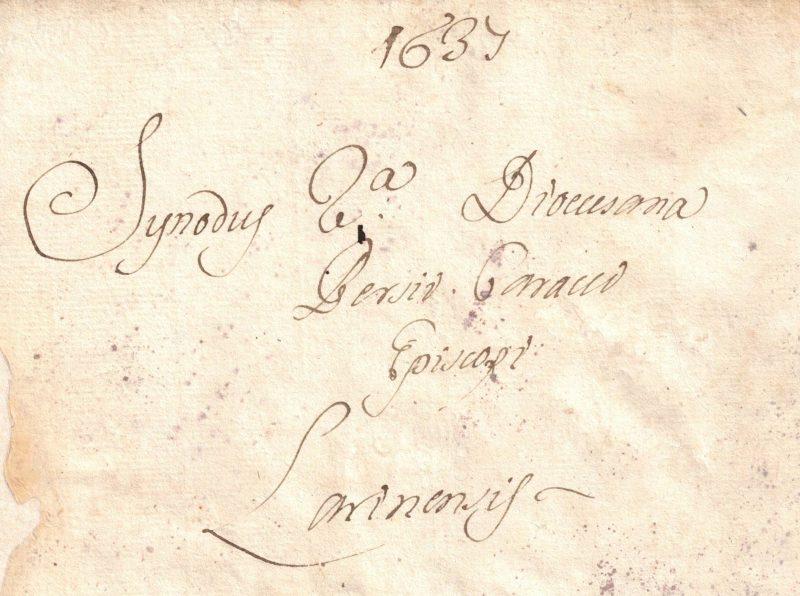 1637
Synodus 2.a Dioecesana
Persii Caracci
Episcopi
Larinensis